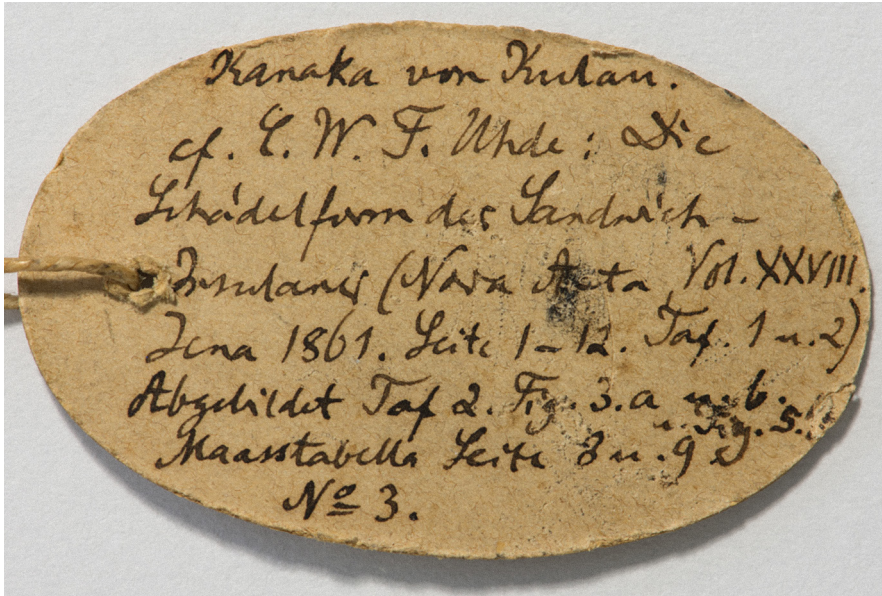 Kanaka von Kulau.
cf. C. W. F. Uhde: Die
Schädelform der Sandwich-
Insulaner (Nova Acta Vol. XXVIII.
Jena 1861. Seite 1-12. Taf. 1 u. 2)
Abgebildet Taf 2. Fig. 3. a u. b.
u. Fig. 5.
Maasstabella Seite 8 u. 9
No 3.